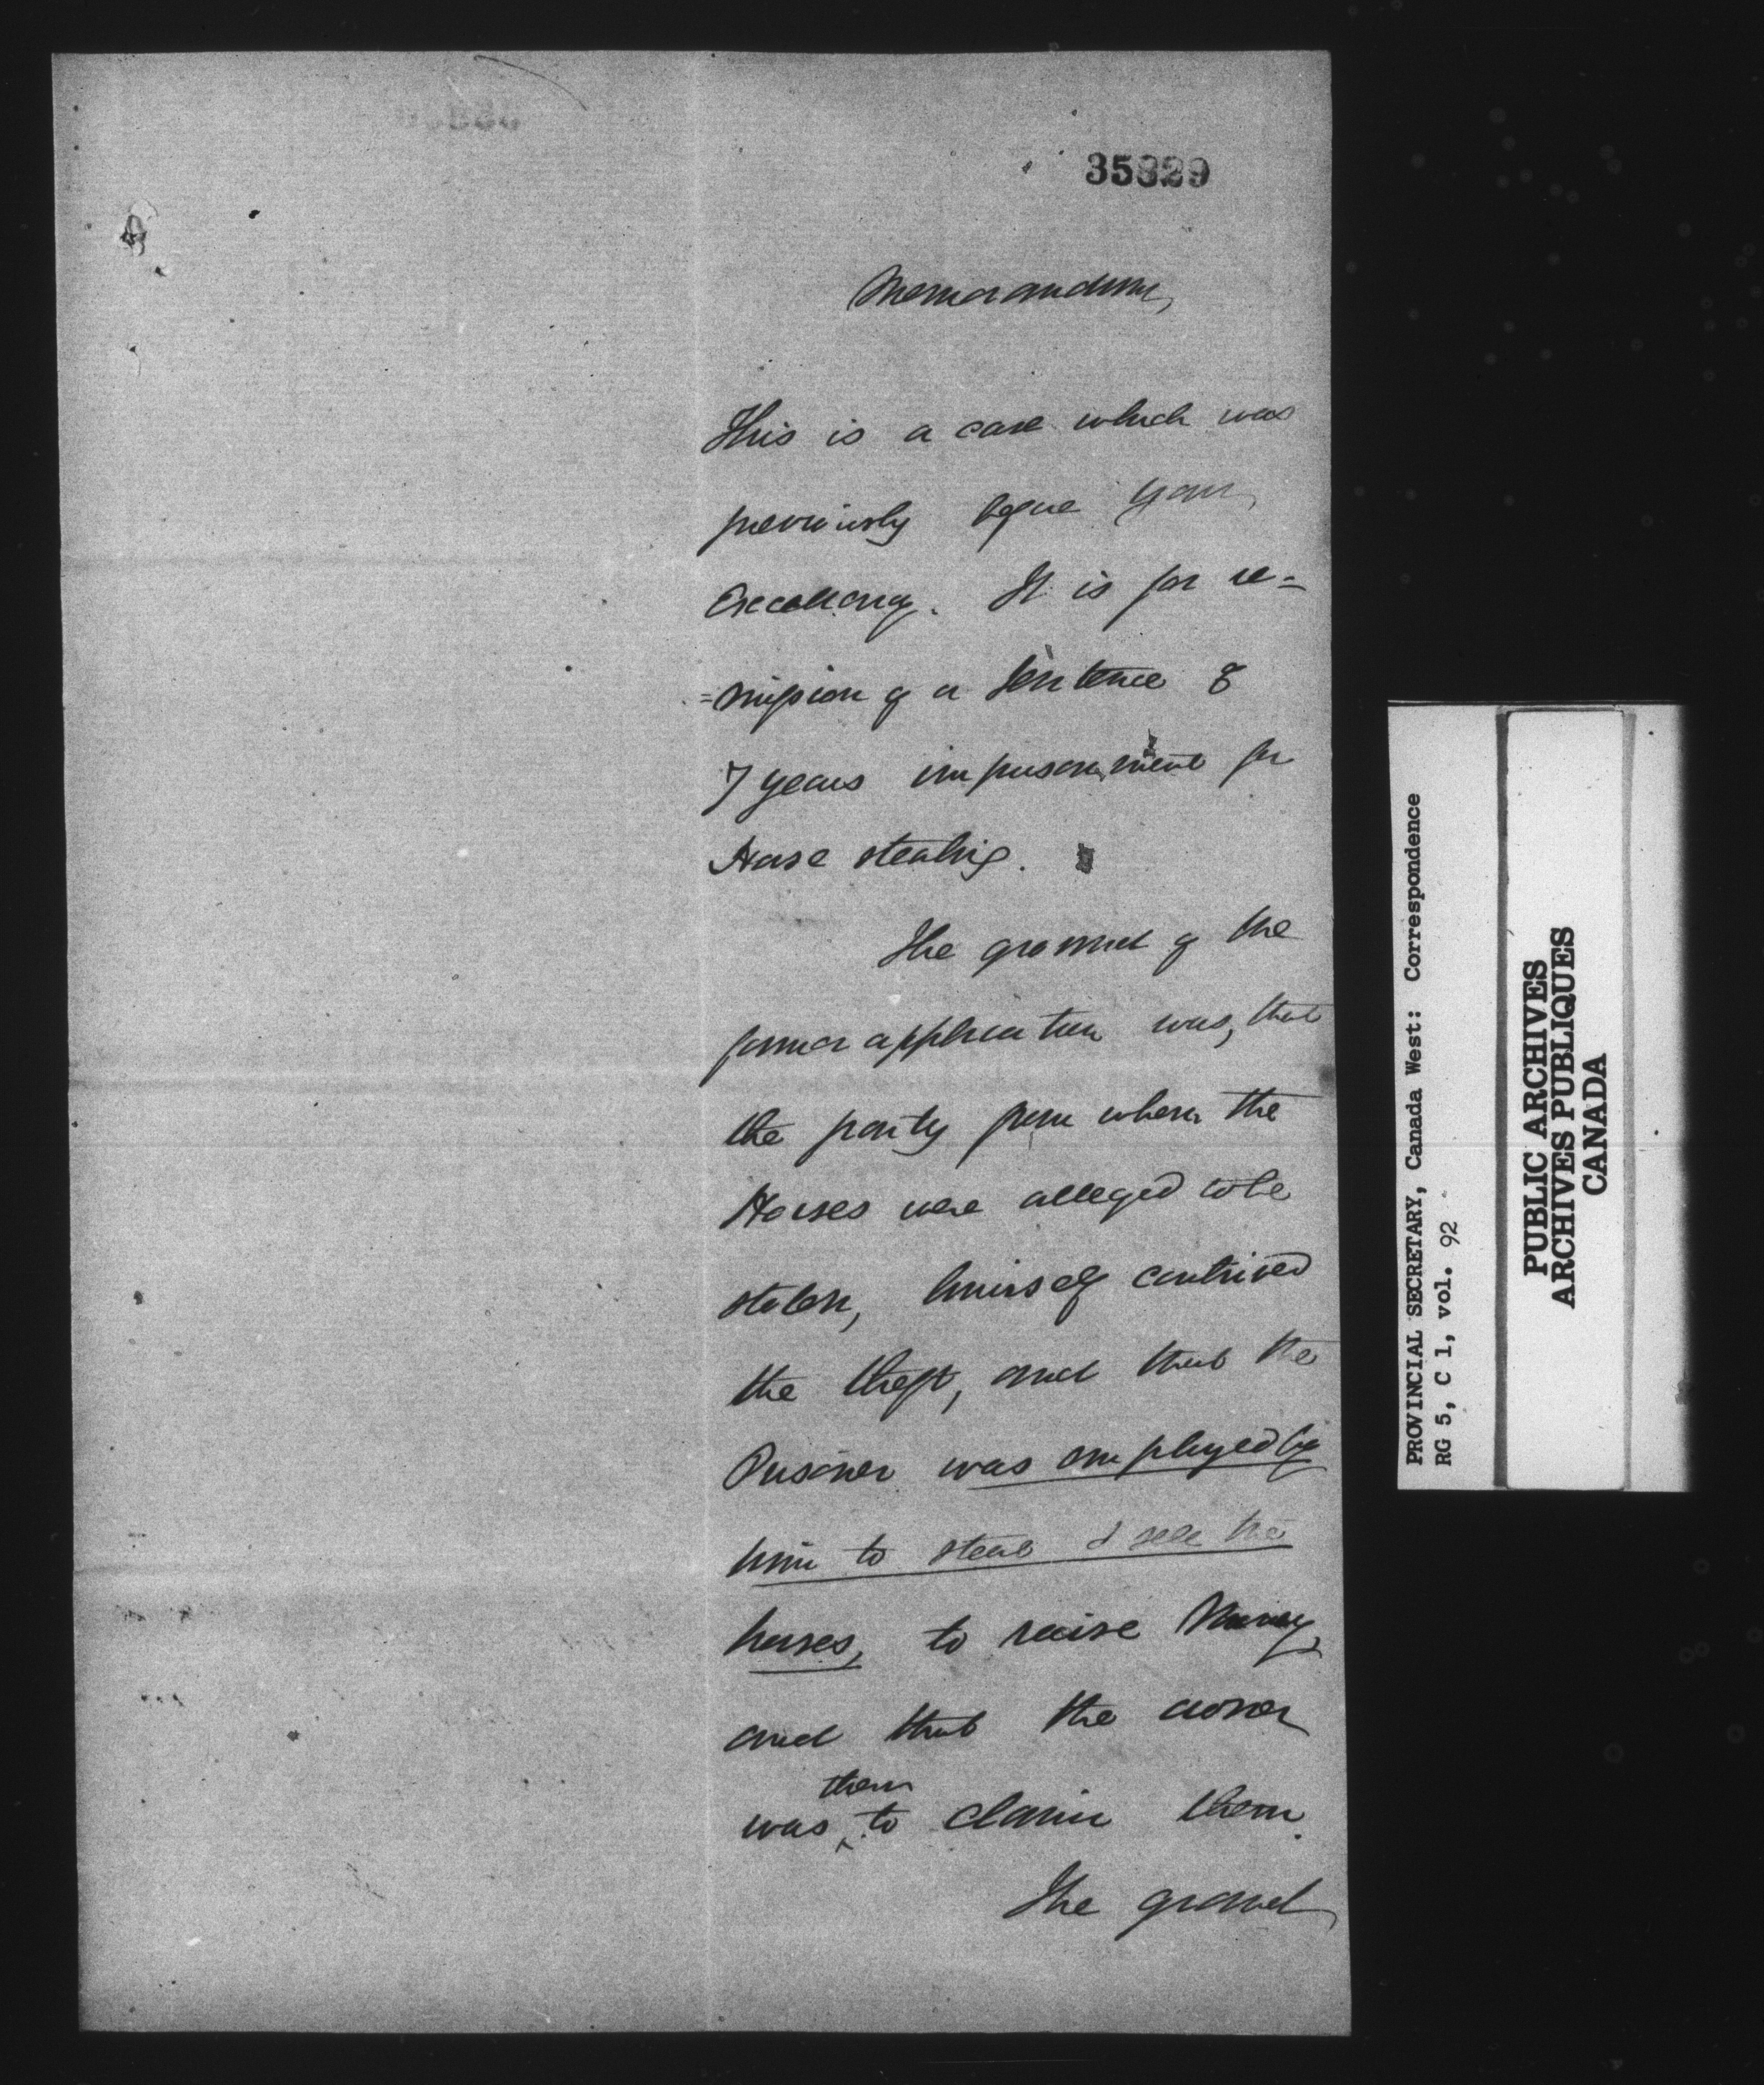 35829
Memorandum,
This is a case which was
previously before Your
Excellency. It is for re=
=mission of a Sentence of
7 years imprisonment for
Horse stealing.
The ground of the
former application was, that
the party from whom the
Horses were alleged to be
stolen, himself contrived
the theft, and that the
Prisoner was employed by
him to steal & sell the
horses, to raise Money,
and that the owner
then
was to claim them.
The ground
PROVINCIAL SECRETARY, Canada West: Correspondence
RG 5, C 1, vol. 92
PUBLIC ARCHIVES
ARCHIVES PUBLIQUES
CANADA